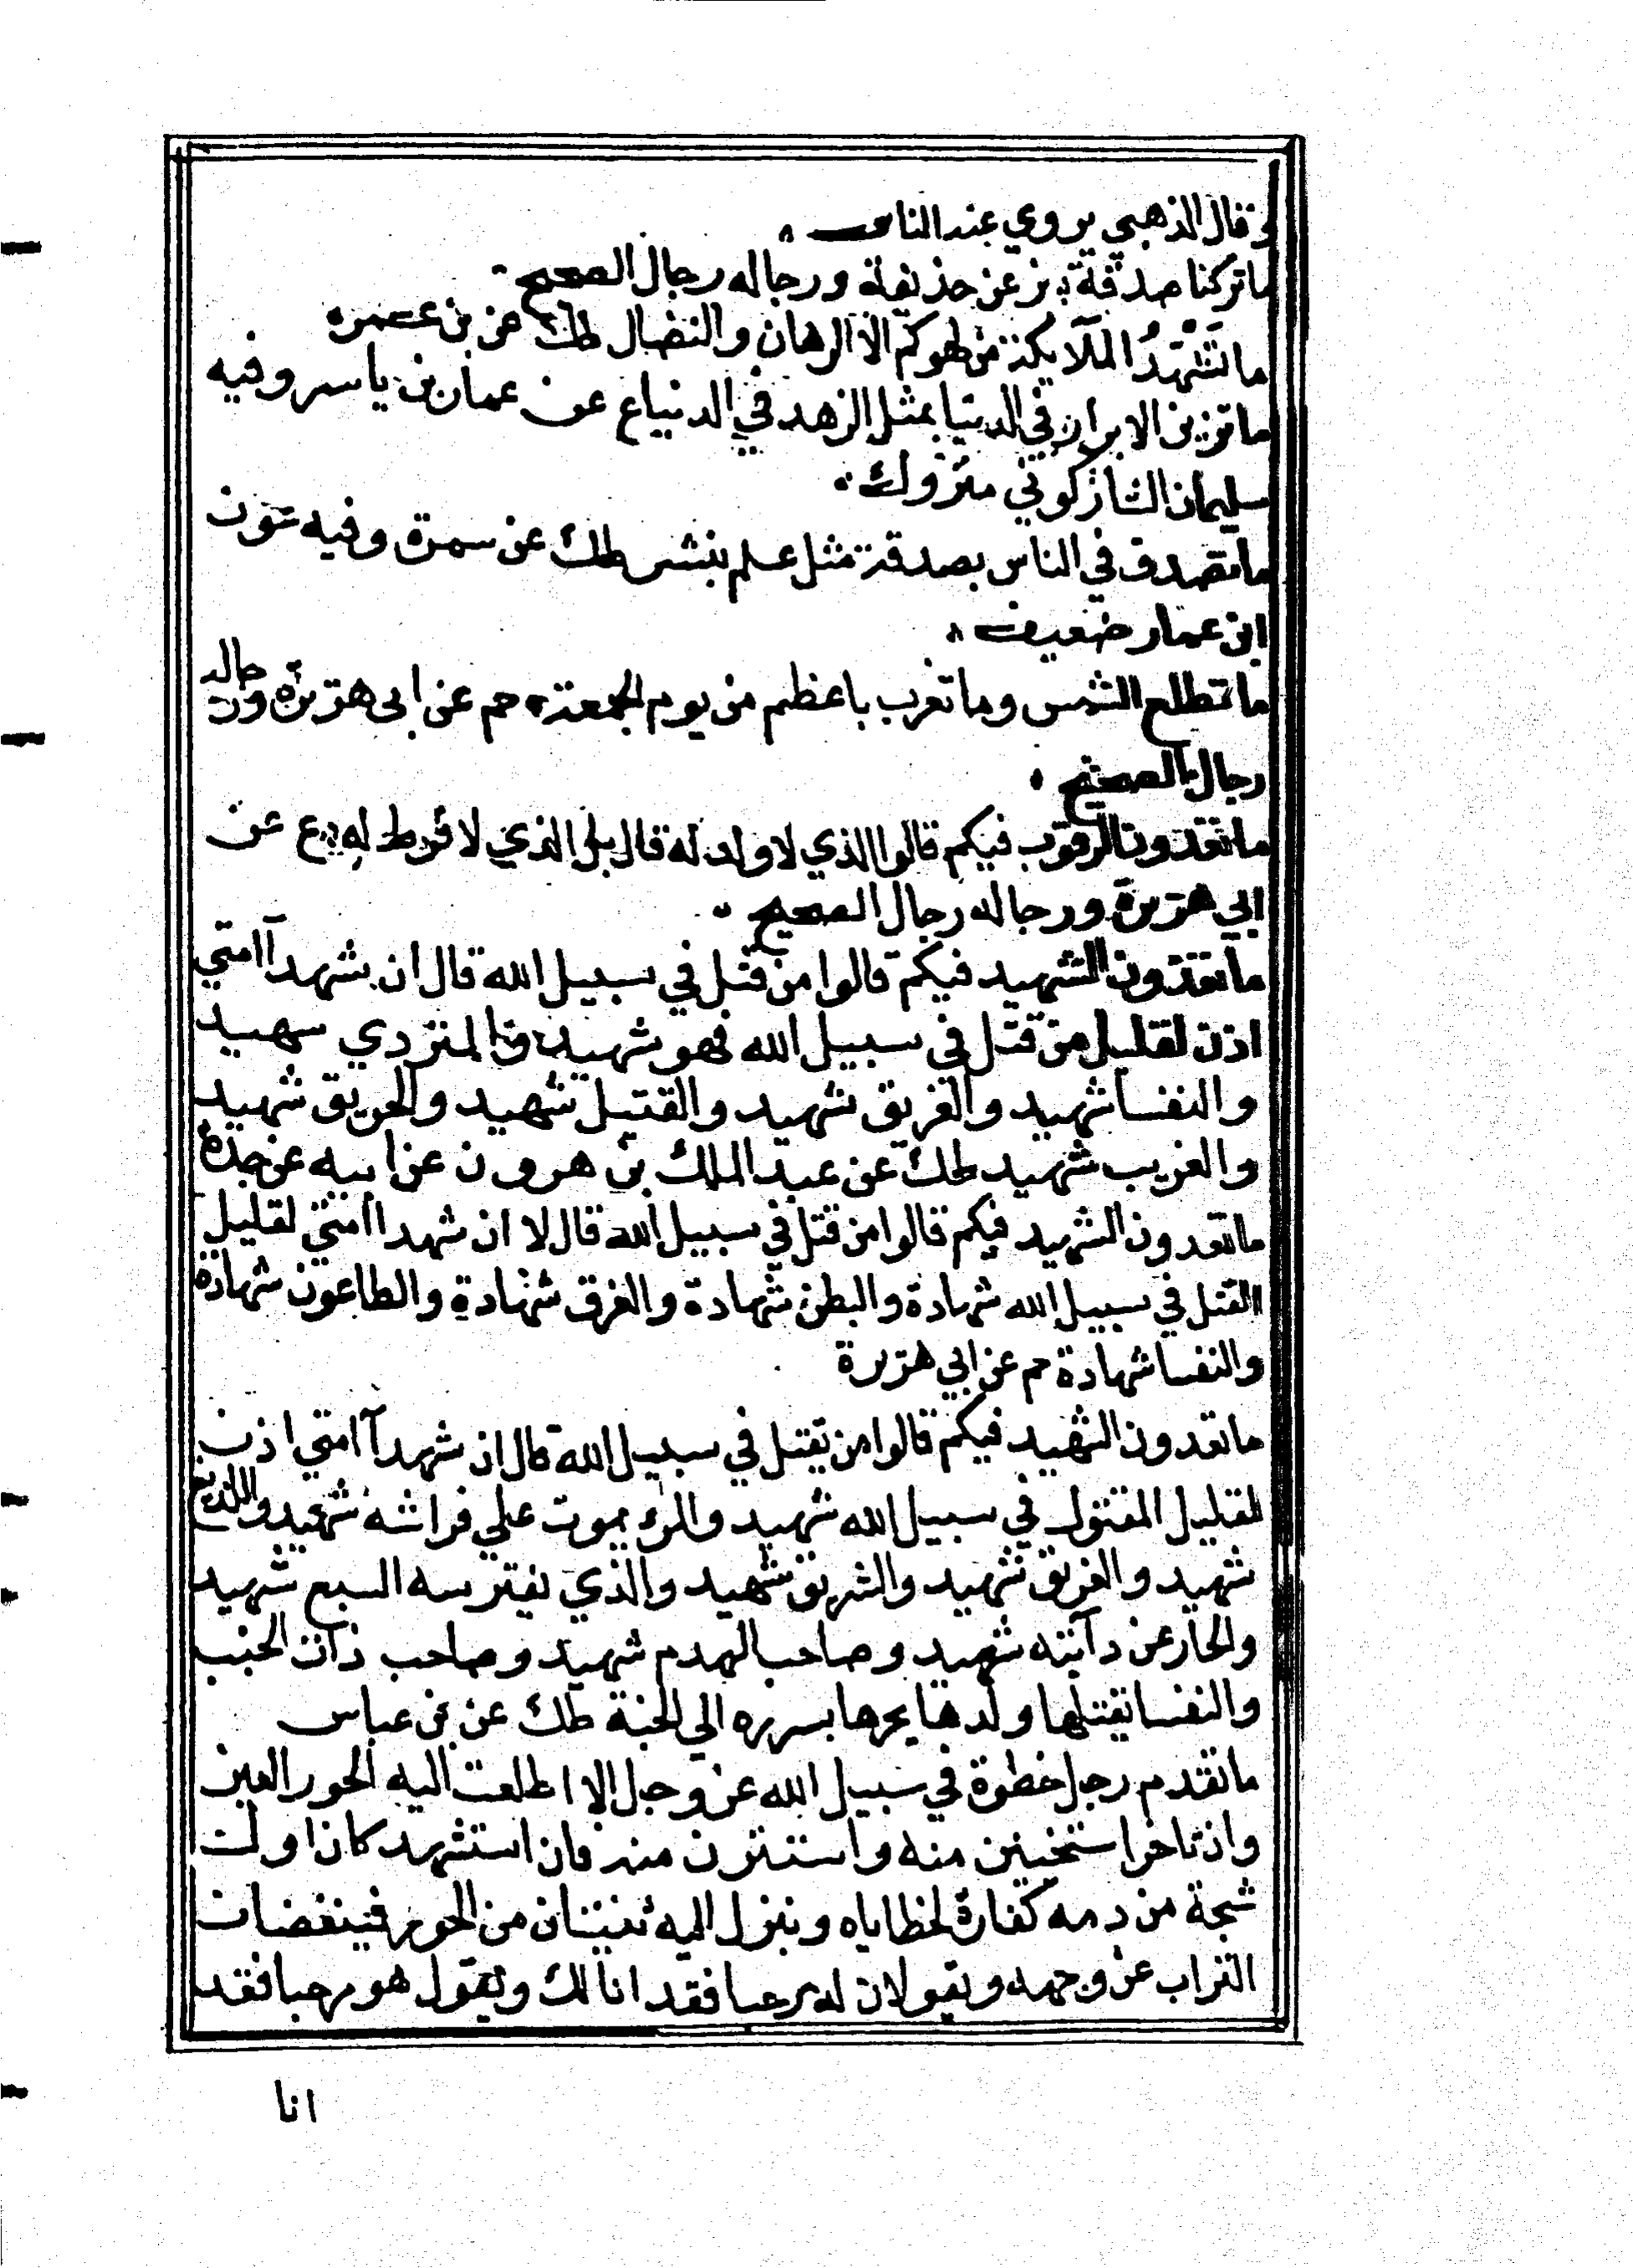 وقال الذهبي يروي عند الناس
ما تركنا صدقة بز عن حذيفة ورجاله رجال الصحيح
ما تشهد الملآيكة من لهوكم الا الرهان والنضال طك عن بن عمر
ما تزين الابرار في الدنيا بمثل الزهد في الدنيا ع عن عمار بن ياسر وفيه
سليمان الشاذكوني متروك
ما تصدق في الناس بصدقة مثل علم ينشر طك عن سمرة وفيه عون
ابن عمار ضعيف
ما تطلع الشمس وما تغرب باعظم من يوم الجمعة حم عن ابي هريرة ورجاله
رجال الصحيح
ما تعدون الرقوب فيكم قالوا الذي لا ولد له قال بل الذي لا فرط له ع عن
ابي هريرة ورجاله رجال الصحيح
ما تعدون الشهيد فيكم قالوا من قتل في سبيل الله قال ان شهدآ امتي
اذن لقليل من قتل في سبيل الله فهو شهيد والمتردي شهيد
والنفسا شهيد والغريق شهيد والقتيل شهيد والحريق شهيد
والغريب شهيد طك عن عبد الملك بن هرون عن ابيه عن جده
ما تعدون الشهيد فيكم قالوا من قتل في سبيل الله قال لا ان شهدا امتي لقليل
القتل في سبيل الله شهادة والبطن شهادة والغرق شهادة والطاعون شهادة
والنفسا شهادة حم عن ابي هريرة
ما تعدون الشهيد فيكم قالوا من يقتل في سبيل الله قال ان شهدآ امتي اذن
لقليل المقتول في سبيل الله شهيد والمرء يموت علي فراشه شهيد واللديغ
شهيد والغريق شهيد والشريق شهيد والذي يفترسه السبع شهيد
والخار عن دآبته شهيد وصاحب الهدم شهيد وصاحب ذات الجنب
والنفسا يقتلها ولدها يجرها بسرره الي الجنة طك عن بن عباس
ما تقدم رجل خطوة في سبيل الله عز وجل الا اطلعت اليه الحور العين
وان تاخر استحيين منه واستترن منه فان استشهد كان اول
شجة من دمه كفارة لخطاياه وينزل اليه ثنتان من الحور فينفضان
التراب عن وجهه ويقولان له مرحبا فقد انا لك ويقول هو مرحبا فقد
انا